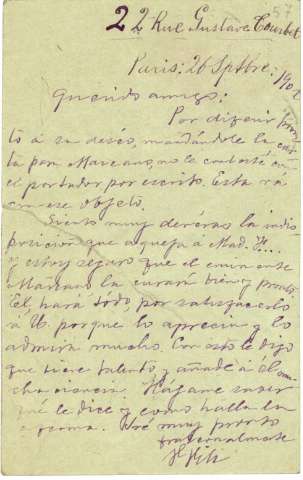 22 Rue Gustave Courbet
57
Paris: 26 Sptbre: 190
Querido amigo:
Por
to á su deseo, mandándole la
para Mareano, no le contesté con
el portador por escrito. Esta vá
con ese objeto.
Siento muy deveras la indis-
posicion que aqueja á Mad. H...
y estoy seguro que el eminente
Mareano la curará bien y pronto
El hará todo por satisfacerlo
á U. porque lo aprecia y lo
admira mucho. Con esto le digo
que tiene talento y añade á él mu-
cha ciencia. Hágame saber
qué le dice y como halla la
enferma. Iré muy pronto
fraternalmente